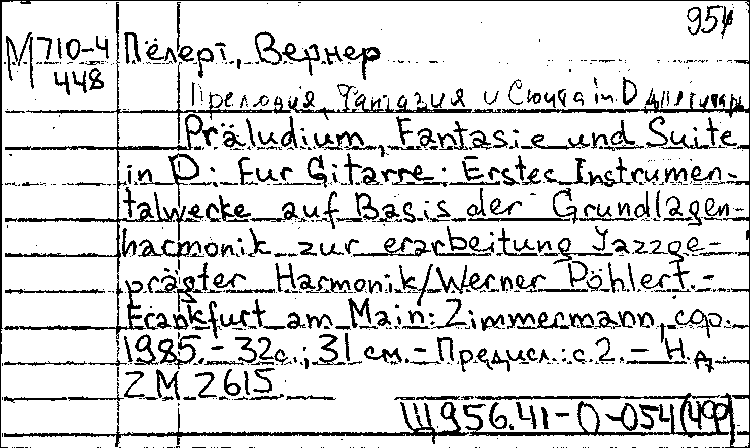 954
М 710-4 Пёлерт, Вернер
448
Прелюдия, Фантазия и Сюита in D для гитары
Präludium, Fantasie und Suite
in D: Fur Gitarre: Erstes Instrumen-
talwecke auf Basis der Grundlagen-
harmonik zur erarbeitung Jazzge-
prägter Harmonik/Werner Pöhlert.-
Frankfurt am Main: Zimmermann, cop.
1985.- 32с.; 31 см.- Предисл.: с.2. - Н.д.
ZM 2615.
Щ956.41-0-054(499)